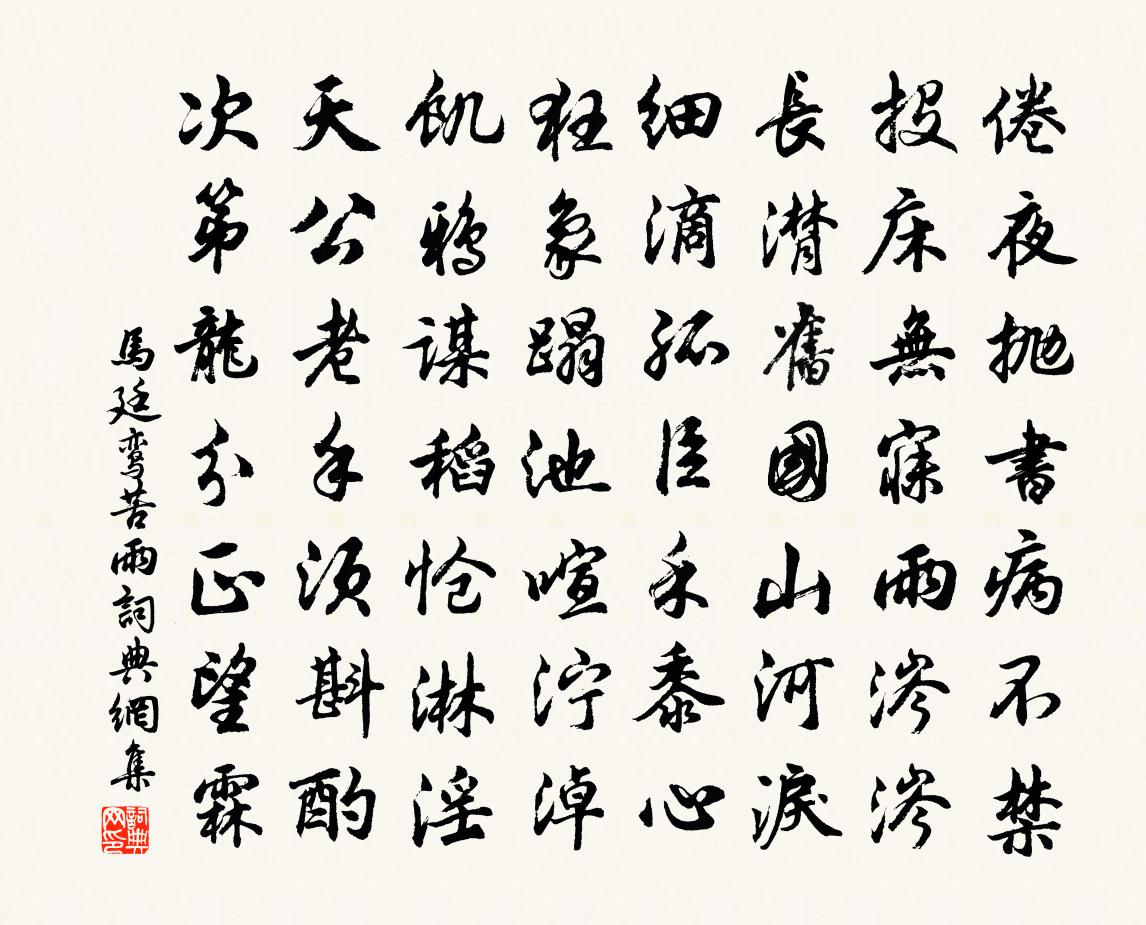 倦夜抛書病不禁
投床無寐雨涔涔
長潸舊國山河淚
細滴孤臣禾黍心
狂象蹋池喧泞淖
飢鴉謀稻怆淋淫
天公老手須斟酌
次第龍分正望霖
馬廷鸾苦雨詞典網集
詞典网印